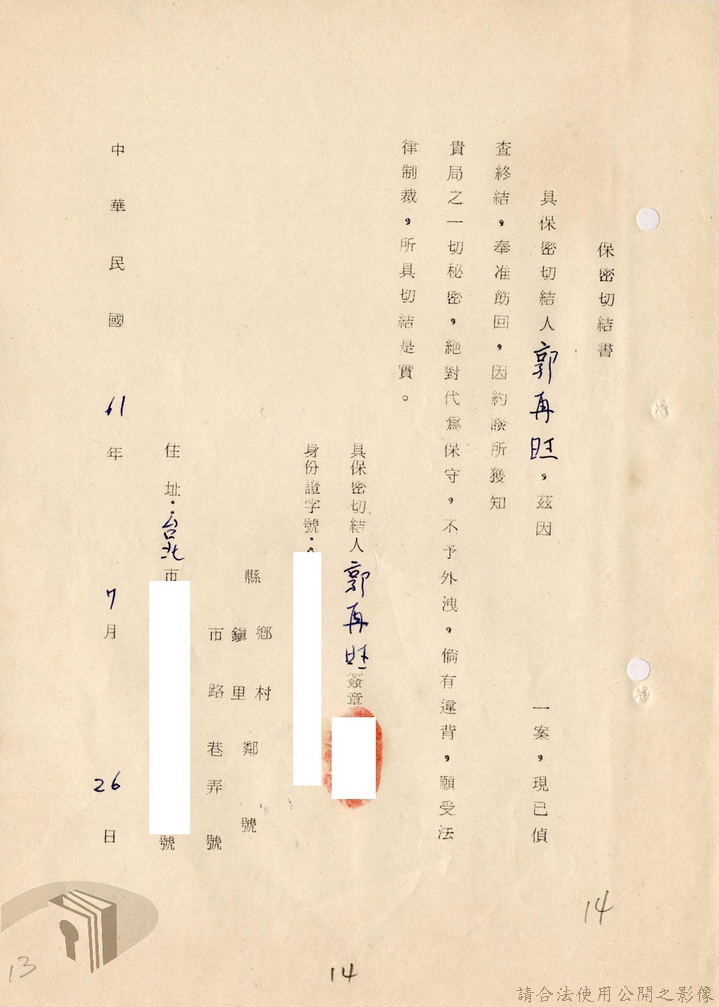 保密切結書
具保密切結人郭再旺，茲因 一案，現已偵
查終結，奉准飭回，因約談所獲知
貴局之一切秘密，絕對代為保守，不予外洩，倘有違背，願受法
律制裁，所具切結是實。
具保密切結人郭再旺簽章
身份證字號：
縣 鄉鎮 村里 鄰 號
市 路 巷 弄 號
住址：台北市 號
中華民國61年7月26日
14
14
13
請合法使用公開之影像